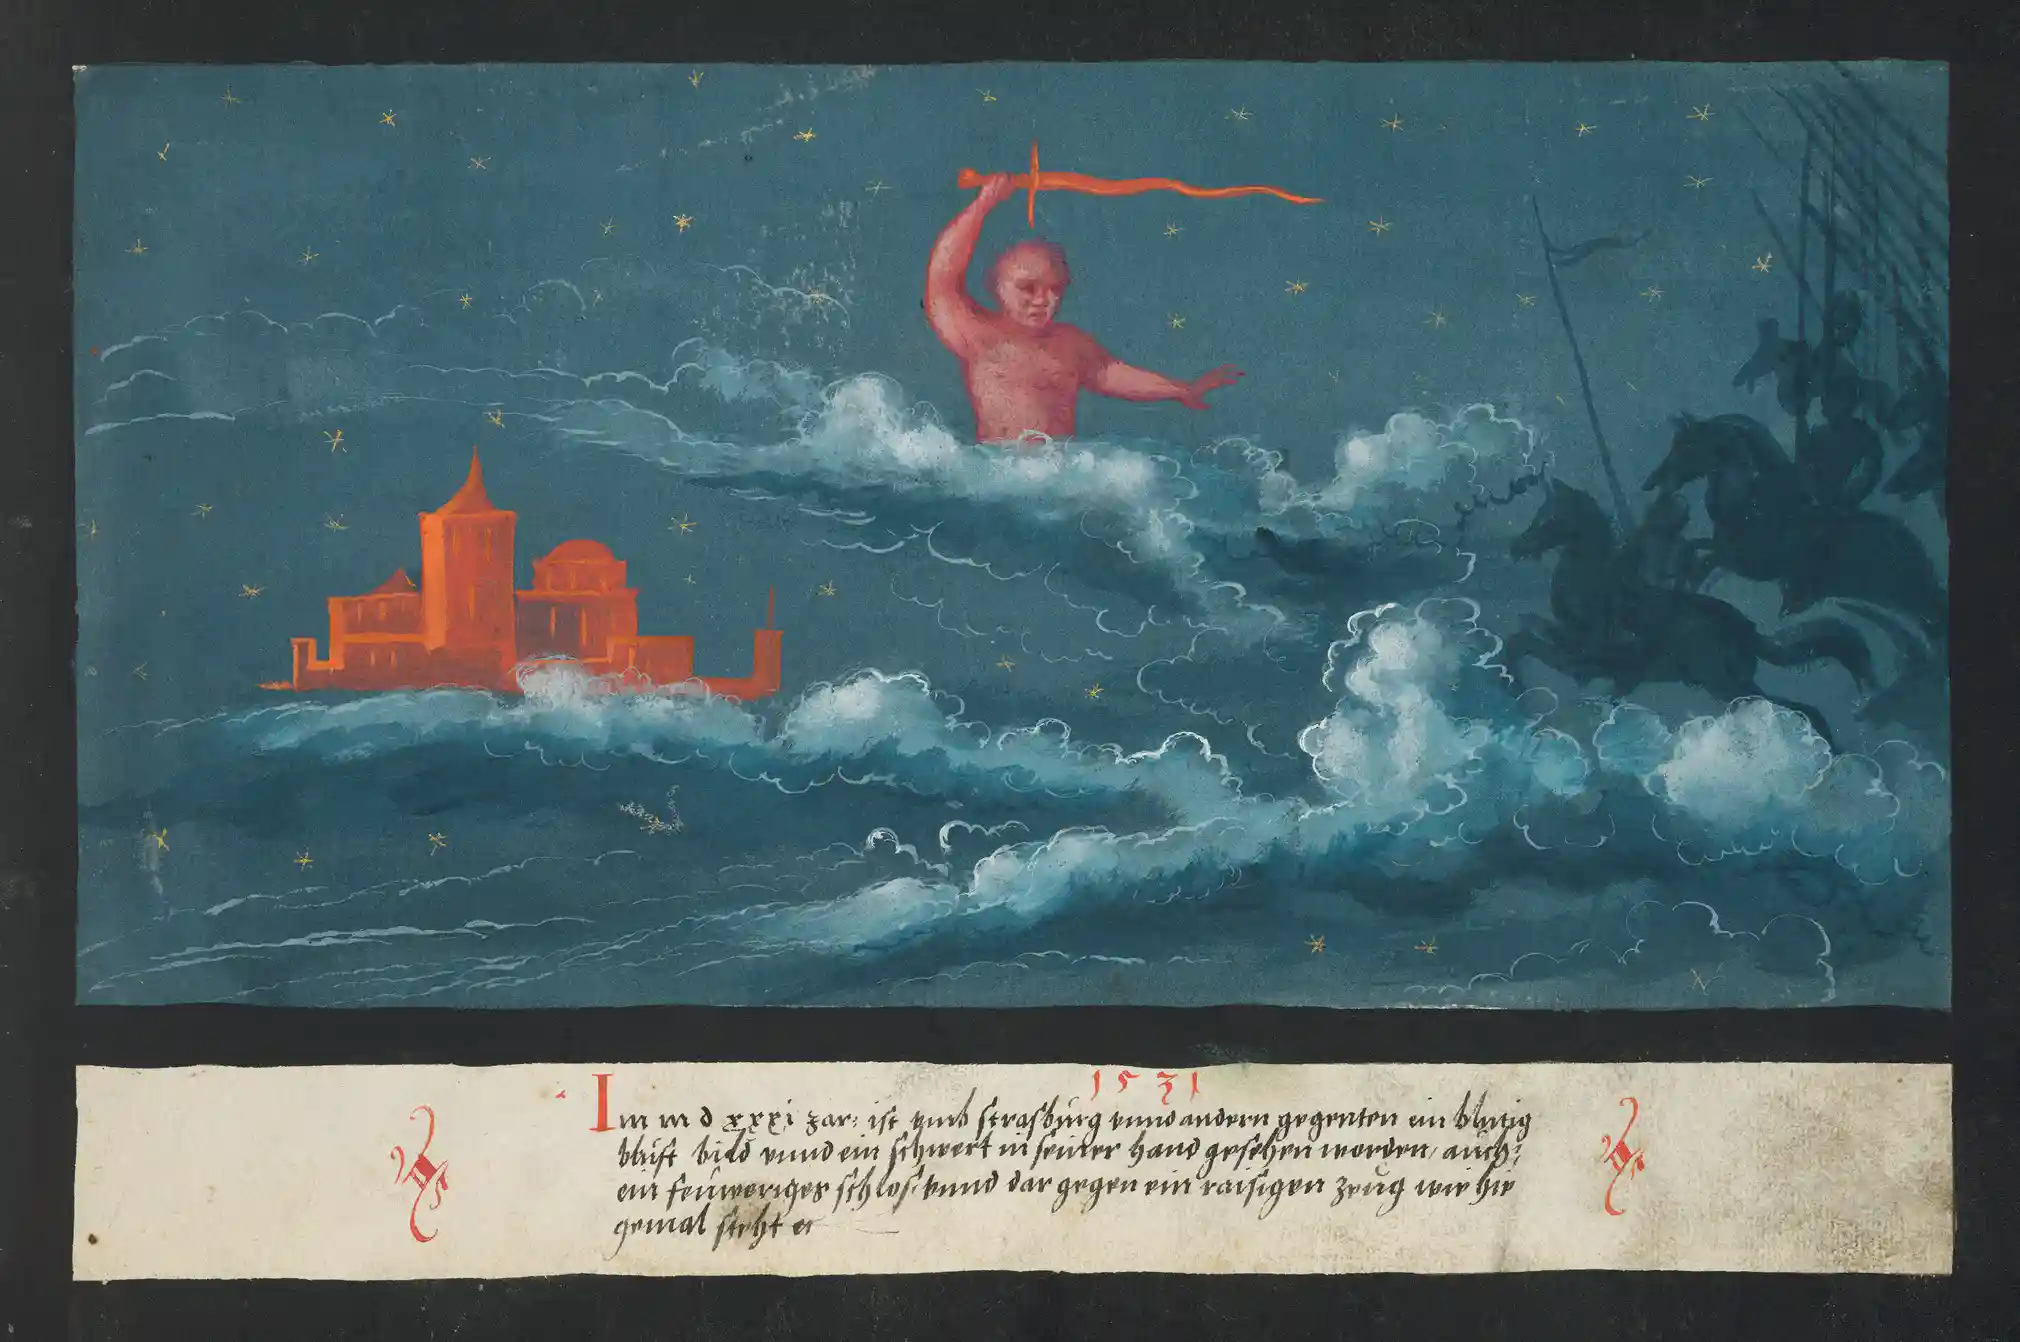 1531
Im m d xxxi Jar: ist vmb strasburg vnnd andern gegenten ein blutig
blust bild vnnd ein schwert in seiner hand gesehen worden, auch:
ein feuweriges schlos, vnnd dar gegen ein raisigen zeug wie hie
gemal steht ec